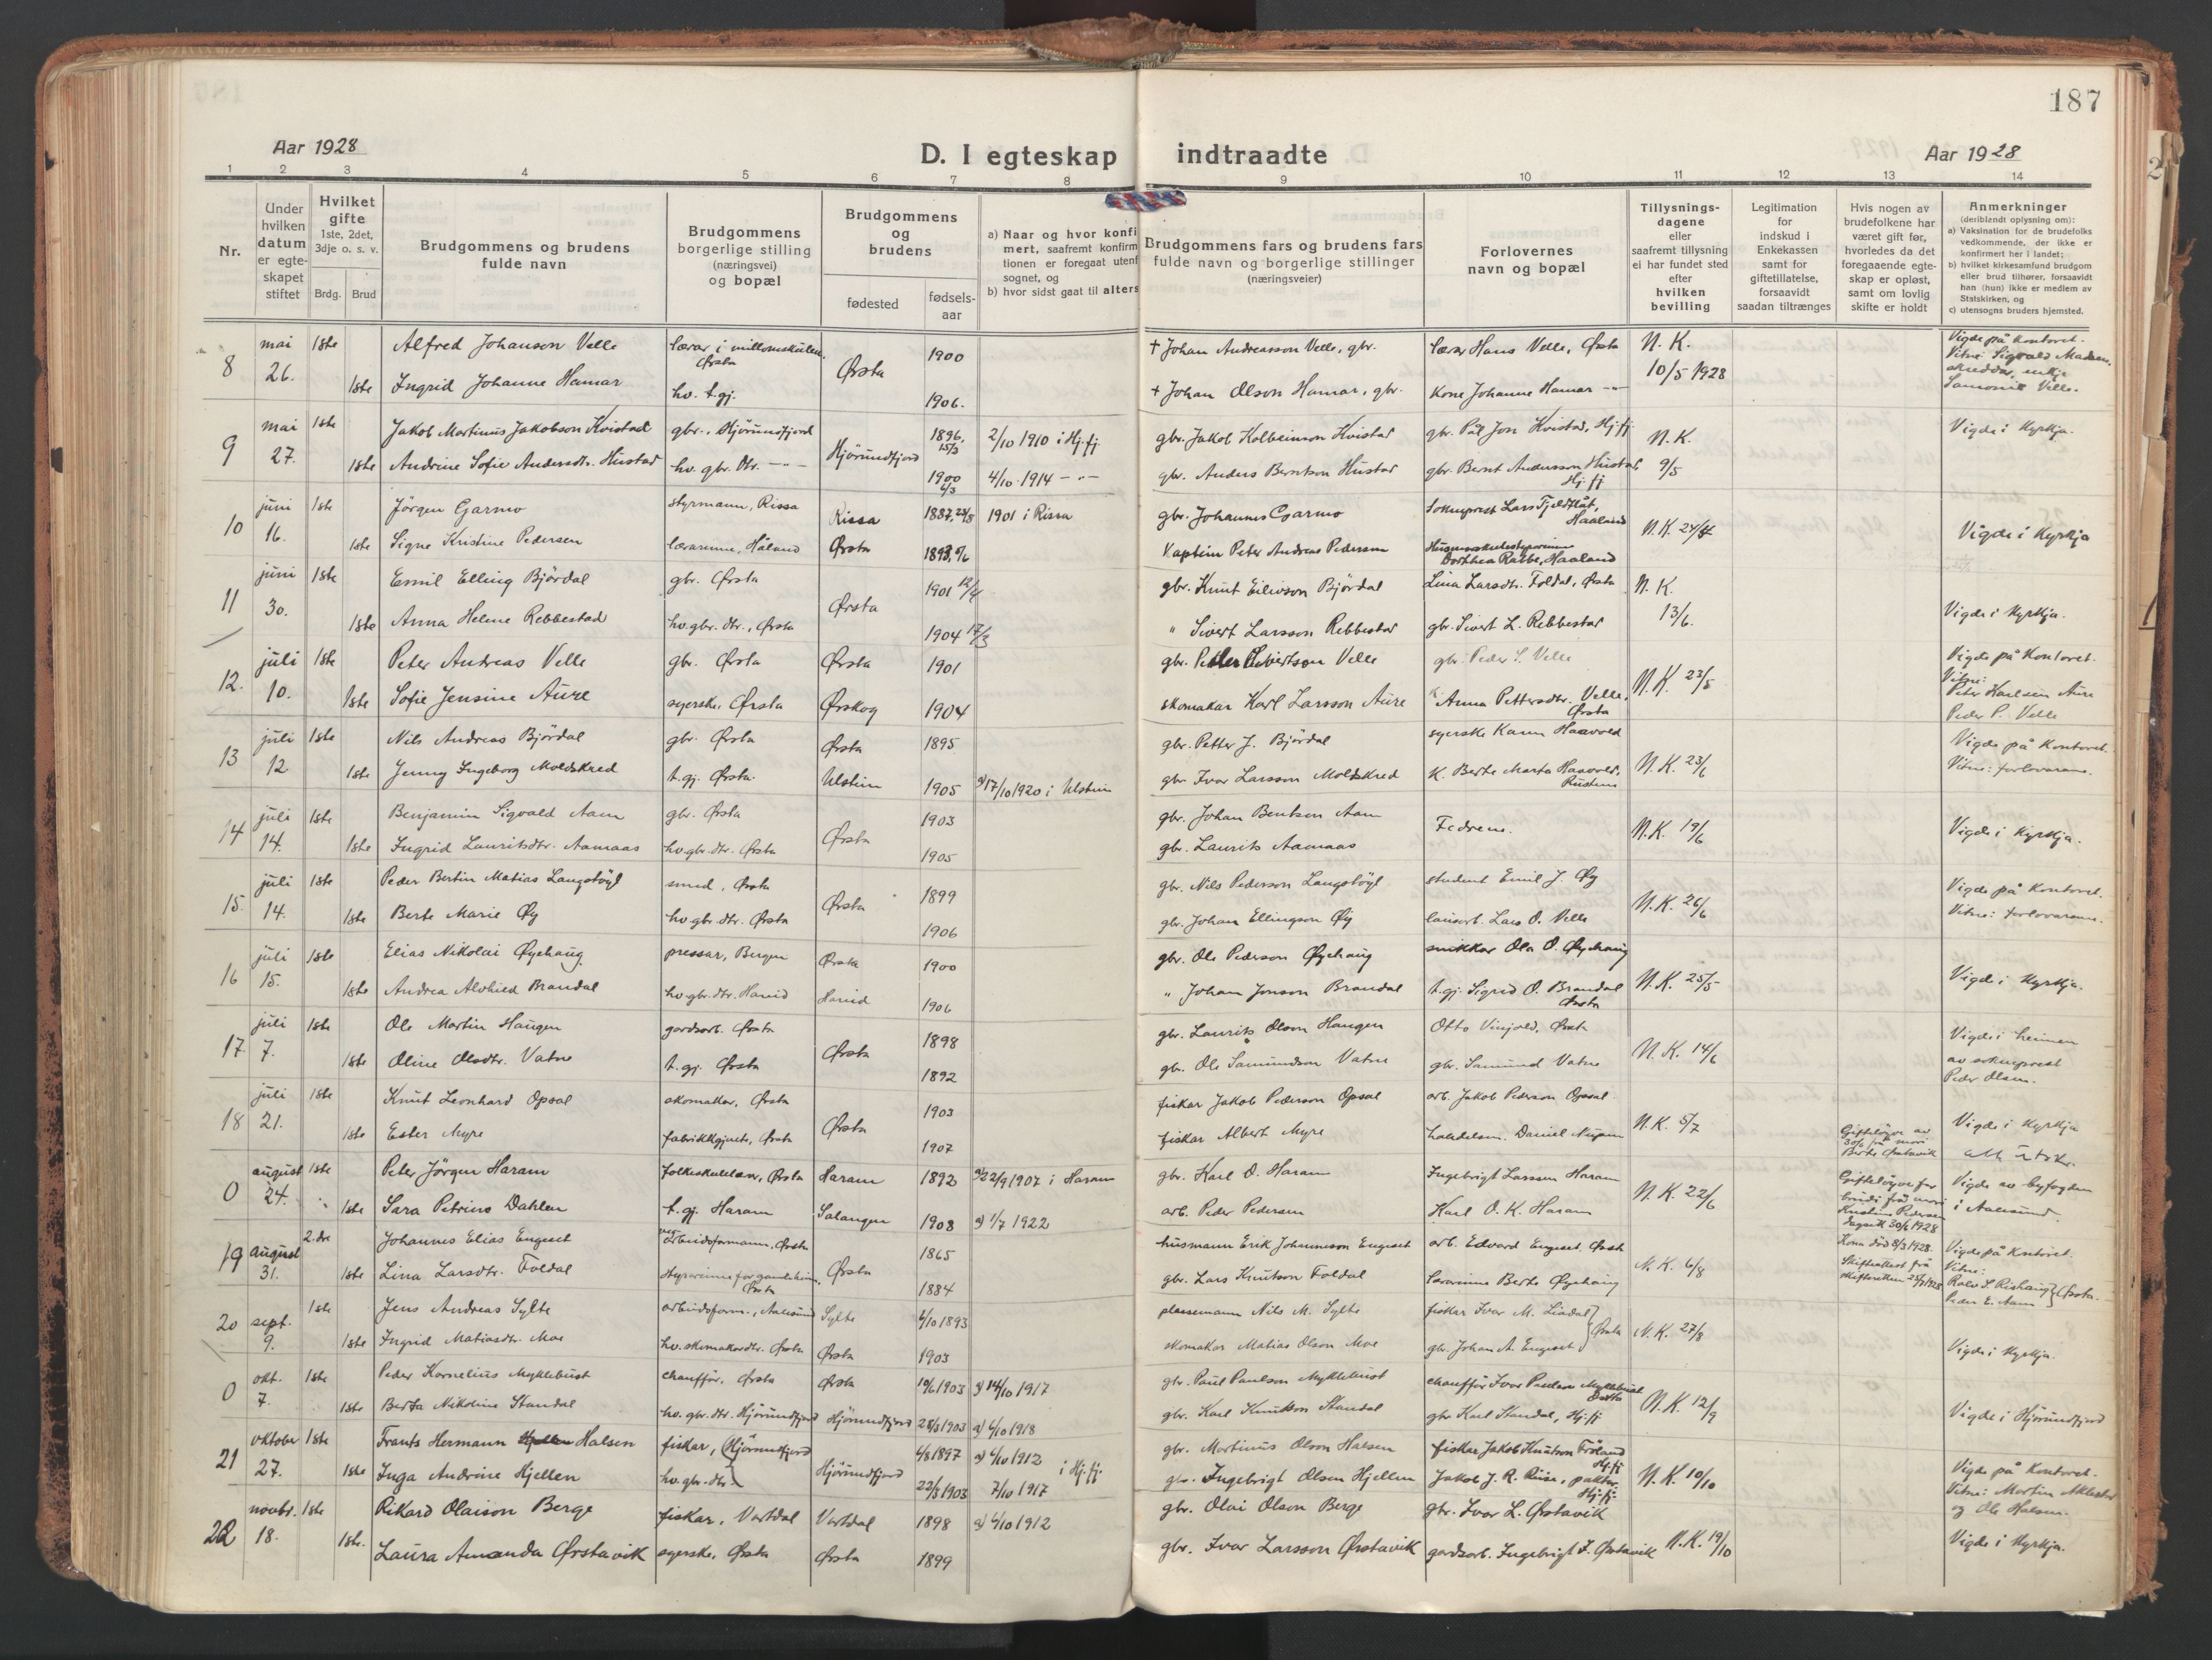 187
Aar 1928
D. I egteskap indtraadte
Aar 1928
1 2 3 4 5 6 7 8 9 10 11 12 13 14
Nr.
Under hvilken datum er egteskapet stiftet
Hvilket gifte 1ste, 2det, 3dje o. s. v.
Brdg. Brud
Brudgommens og brudens fulde navn
Brudgommens borgerlige stilling (næringsvei) og bopæl
Brudgommens og brudens
fødested fødsels-aar
a) Naar og hvor konfi
mert, saafremt konfirm
tionen er foregaat utenf
sognet, og
b) hvor sidst gaat til alters
Brudgommens fars og brudens fars fulde navn og borgerlige stillinger (næringsveier)
Forlovernes navn og bopæl
Tillysnings-dagene eller saafremt tillysning ei har fundet sted efter hvilken bevilling
Legitimation for indskud i Enkekassen samt for giftetillatelse, forsaavidt saadan tiltrænges
Hvis nogen av brudefolkene har været gift før, hvorledes da det foregaaende egteskap er opløst, samt om lovlig skifte er holdt
Anmerkninger
(deriblandt oplysning om):
a) Vaksination for de brudefolks vedkommende, der ikke er konfirmert her i landet;
b) hvilket kirkesamfund brudgom eller brud tilhører, forsaavidt han (hun) ikke er medlem av Statskirken, og
c) utensogns bruders hjemsted.
8 mai 26. 1ste Alfred Johanson Velle lærar i millomskulen, Ørsta Ørsta 1900 + Johan Andreasson Velle, gbr. lærar Hans Velle, Ørsta N. K. 10/5 1928 Vigde på kontoret. Vitne: Sigvald Madsen, skreddar, enkje Samonie Velle.
1ste Ingrid Johanne Hamar hv. t.gj. 1906. + Johan Olson Hamar, gbr. Kone Johanne Hamar -"-
9 mai 27. 1ste Jakob Martinus Jakobson Kvistad gbr., Hjörundfjord Hjörundfjord 1896, 15/3 2/10 1910 i Hj.fj. gbr. Jakob Kolbeinson Kvistad gbr. Pål Jon Kvistad, Hj.fj. N. K. 9/5 Vigde i Kyrkja.
1ste Andrine Sofie Andersdtr. Hustad hv. gbr. dtr. -"- 1900 6/3 4/10 1914 -"- gbr. Anders Berntson Hustad gbr. Bernt Andersson Hustad, Hj.fj
10 juni 16. 1ste Jörgen Garmo styrmann, Rissa Rissa 1887, 23/8 1901 i Rissa gbr. Johannes Garmo Sokneprest Lars Fjeldtlåt, Haaland N.K. 24/4 Vigde i Kyrkja
1ste Signe Kristine Pedersen lærarinne, Håland Ørsta 1893, 5/6 Kaptein Peter Andreas Pedersen Husmorskulestyrarinne Dorthea Rabbe, Haaland
11 juni 30. 1ste Emil Elling Bjørdal gbr. Ørsta Ørsta 1901 12/4 gbr. Knut Eilivson Bjørdal Lina Larsdtr. Foldal, Ørsta N. K. 13/6. Vigde i Kyrkja.
1ste Anna Helene Rebbestad hv. gbr. dtr., Ørsta 1904 17/3 " Sivert Larsson Rebbestad gbr. Sivert L. Rebbestad
12. juli 10. 1ste Peter Andreas Velle gbr. Ørsta Ørsta 1901 gbr. Petter Sivertson Velle gbr. Peder S. Velle N.K. 23/5 Vigde på Kontoret. Vitne: Peter Karlsen Aure Peder P. Velle
1ste Sofie Jensine Aure syerske, Ørsta Ørskog 1904 skomakar Karl Larsson Aure K. Anna Pettersdtr. Velle, Ørsta
13 juli 12 1ste Nils Andreas Bjørdal gbr. Ørsta Ørsta 1895 gbr. Petter J. Bjørdal syerske Karen Haavold N.K. 23/6 Vigde på Kontoret. Vitne: forlovarane.
1ste Jenny Ingeborg Moldskred t.gj. Ørsta Ulstein 1905 a) 17/10 1920 i Ulstein gbr. Ivar Larsson Moldskred K. Berte Marta Haavold,
14 juli 14. 1ste Benjamin Sigvald Aam gbr. Ørsta Ørsta 1903 gbr. Johan Bentsen Aam Fedrene. N.K. 19/6 Vigde i Kyrkja.
1ste Ingrid Lauritsdtr. Aamaas hv. gbr. dtr. Ørsta 1905 gbr. Laurits Aamaas
15. juli 14. 1ste Peder Bertin Matias Langstøyl smed, Ørsta Ørsta 1899 gbr. Nils Pederson Langstøyl student Emil J. Øy N.K. 26/6 Vigde på Kontoret. Vitne: forlovarane.
1ste Berte Marie Øy hv. gbr. dtr. Ørsta 1906 gbr. Johan Ellingson Øy Lars O. Velle
16 juli 15. 1ste Elias Nikolai Øyehaug pressar, Bergen Ørsta 1900 gbr. Ole Pederson Øyehaug snikkar Ola O. Øyehaug N.K. 25/5 Vigde i Kyrkja.
1ste Andrea Alvhild Brandal hv. gbr. dtr. Hareid Hareid 1906 " Johan Jonson Brandal t.gj. Sigrid O. Brandal Ørsta
17 juli 7. 1ste Ole Martin Haugen gardsarb. Ørsta Ørsta 1898 gbr. Laurits Olson Haugen Otto Vinjevold, Ørsta N. K. 14/6 Vigde i heimen av sokneprest Peder Olsen.
1ste Oline Olsdtr. Vatne t.gj. Ørsta 1892 gbr. Ole Samundson Vatne gbr. Samund Vatne
18 juli 21. 1ste Knut Leonhard Opsal skomakar, Ørsta Ørsta 1903 fiskar Jakob Pederson Opsal arb. Jakob Pederson Opsal N.K. 5/7 Vigde i Kyrkja
1ste Ester Myre fabrikkgjente, Ørsta 1907 fiskar Albert Myre handelsm. Daniel Nupen Gifteløyve av 30/6 frå mori Berte Ørstavik
0 august 24. 1ste Peter Jörgen Haram folkeskulelærar, Ørsta Haram 1892 a) 22/9 1907 i Haram gbr. Karl O. Haram Ingebrigt Larsson Haram N.K. 22/6 Gifteløyve for brudi frå mori Kristine Pedersen 30/6 1928 Vigde av byfogden i Aalesund.
1ste Sara Petrine Dahlen t.gj. Haram Salangen 1908 a) 1/7 1922 arb. Peder Pedersen Karl O. K. Haram
19 august 31. 2.dre Johannes Elias Engeset arbeidsformann, Ørsta Ørsta 1865 husmann Erik Johanneson Engeset arb. Edvard Engeset, Ørsta N. K. 6/8 Kona død 8/3 1928. Skifteattest frå skifteretten 25/7 1928 Vigde på Kontoret. Vitne: Rolv S. Rishaug Peder E. Aam } Ørsta.
1ste Lina Larsdtr. Foldal styrarinne for gamleheim, Ørsta 1884 gbr. Lars Knutson Foldal lærarinne Berte Øyehaug
20 sept. 9. 1ste Jens Andreas Sylte arbeidsform., Aalesund Sylte 4/10 1893 plassemann Nils M. Sylte fiskar Ivar M. Liadal } Ørsta N.K. 27/8 Vigde i Kyrkja.
1ste Ingrid Matiasdtr. Moe hv. skomakardtr. Ørsta Ørsta 1903 skomakar Matias Olson Moe gbr. Johan A. Engeset
0 okt. 7. 1ste Peder Kornelius Myklebust chauffør, Ørsta Ørsta 19/6 1903 a) 14/10 1917 gbr. Paul Paulson Myklebust chauffør Ivar Paulson Myklebust Ørsta N.K. 12/9 Vigde i Hjörundfjord
1ste Berta Nikoline Standal hv. gbr. dtr. Hjörundfjord Hjörundfjord 28/3 1903 a) 6/10 1918 gbr. Karl Knutson Standal gbr. Karl Standal, Hj.fj
21 oktober 27. 1ste Frants Hermann Halsen fiskar, Hjörundfjord Hjörundfjord 4/8 1897 a) 6/10 1912 i Hj.fj. gbr. Martinus Olson Halsen fiskar Jakob Knutson Fröland Hj.fj N.K. 10/10 Vigde på Kontoret. Vitne: Martin Aklestad og Ole Halsen.
1ste Inga Andrine Hjellen hv. gbr. dtr. 22/3 1903 7/10 1917 gbr. Ingebrigt Olsen Hjellen Jakob J. R. Ruse, Hj.fj.
22 novbr. 18. 1ste Rikard Olaison Berge fiskar, Vartdal Vartdal 1898 a) 6/10 1912 gbr. Olai Olson Berge gbr. Ivar L. Ørstavik N.K. 19/10 Vigde i Kyrkja.
1ste. Laura Amanda Ørstavik syerske, Ørsta Ørsta 1899 gbr. Ivar Larsson Ørstavik gardsarb. Ingebrigt I. Ørstavik